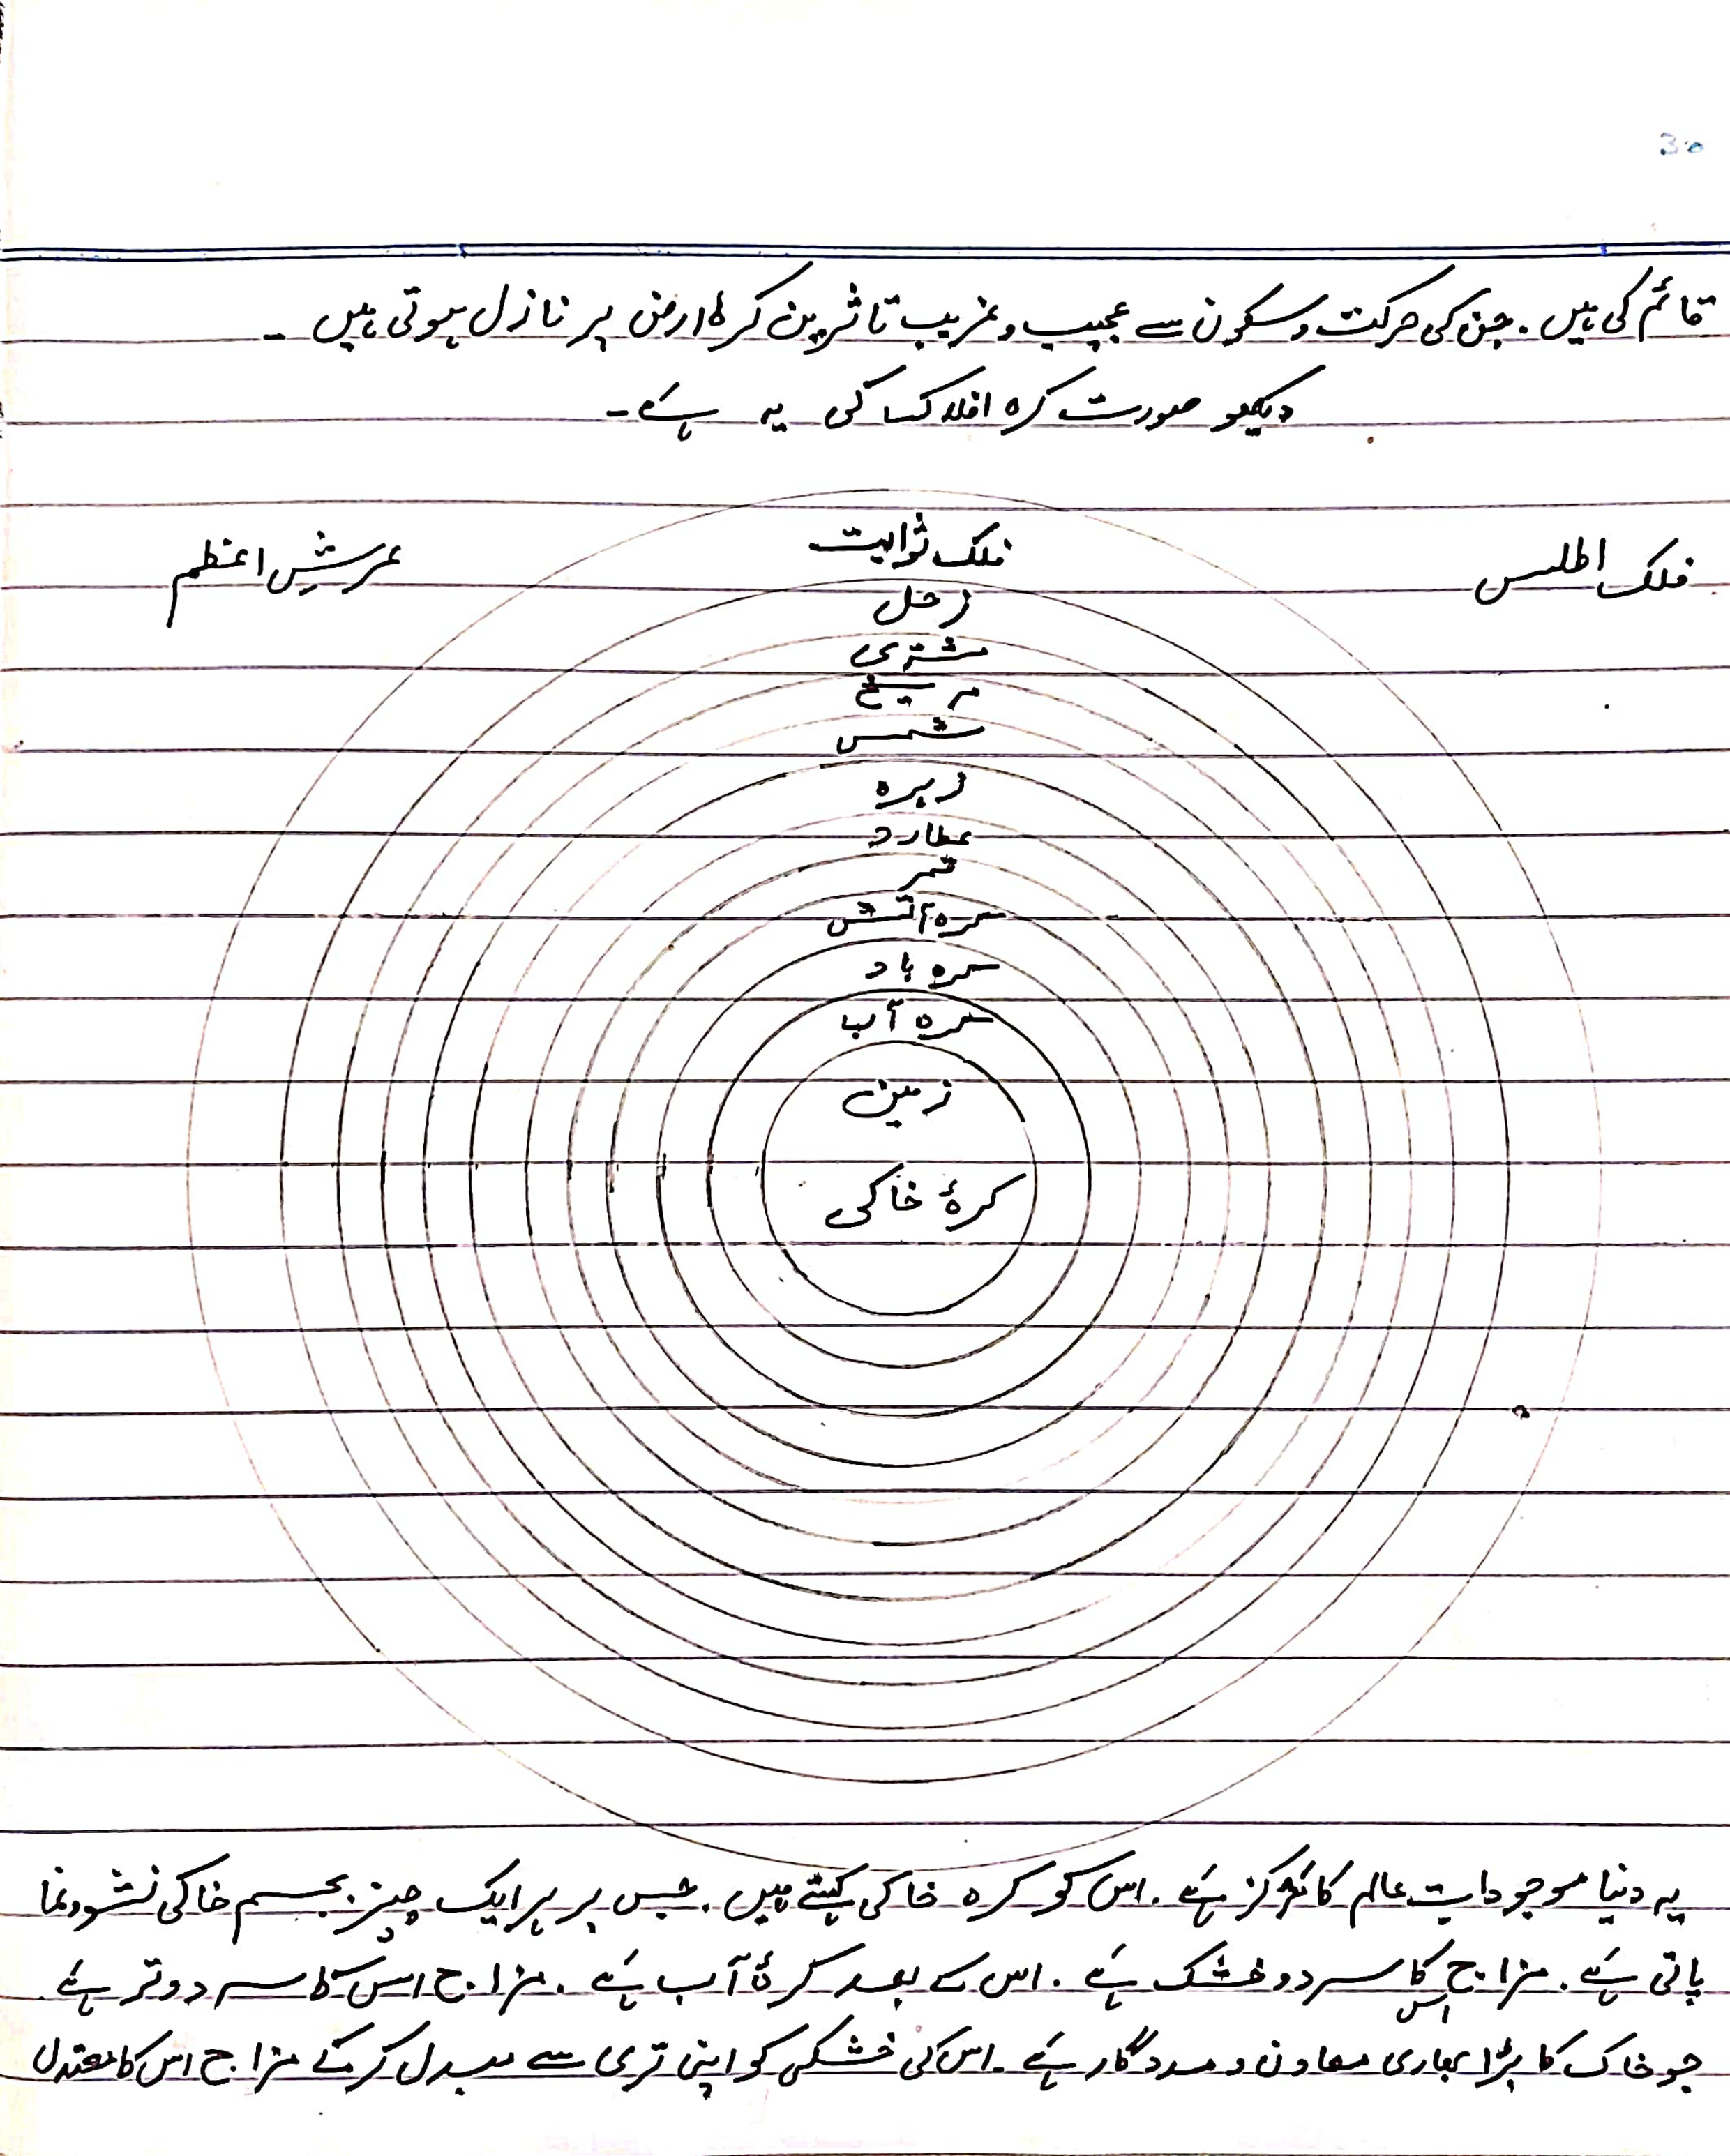 30
قائم کی ہیں ۔ جن کی حرکت و سکون سے عجیب و غریب تاثرین کرۂ ارض پر نازل ہوتی ہیں ۔
دیکھو صورت کرہ افلاک کی یہ ہے ۔
فلک اطلس
فلک ثوابت
عرش اعظم
زحل
مشتری
مریخ
شمس
زہرہ
عطارد
قمر
کرہ آتش
کرہ باد
کرہ آب
زمین
کرۂ خاکی
یہ دنیا موجودات عالم کا مرکز ہے ۔ اس کو کرہ خاکی کہتے ہیں ۔ جس پر ہر ایک چیز بجسم خاکی نشوونما
پاتی ہے ۔ مزاج اس کا سرد و خشک ہے ۔ اس کے بعد کرۂ آب ہے ۔ مزاج اس کا سرد و تر ہے
جو خاک کا بڑا بھاری معاون و مددگار ہے ۔ اس کی خشکی کو اپنی تری سے مبدل کر کے مزاج اس کا معتدل